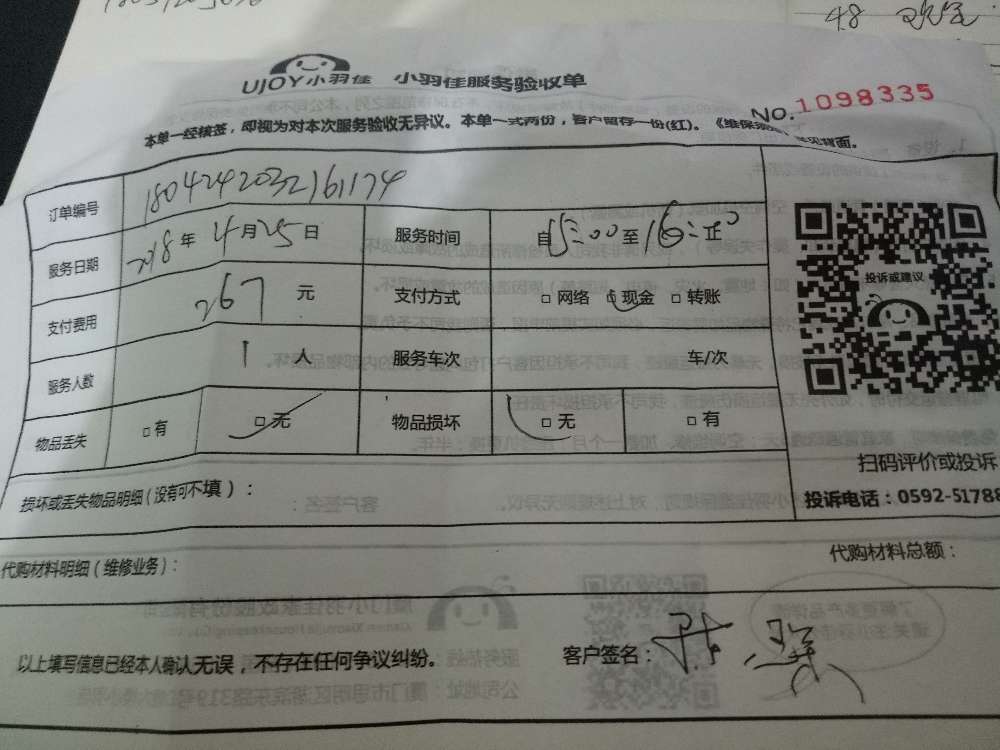 48
UJOY小羽佳 小羽佳服务验收单
NO.1098335
本单一经核签，即视为对本次服务验收无异议。本单一式两份，客户留存一份(红)。《维保须 见背面。
订单编号 1804242032161174
服务日期 2018年4月25日 服务时间 自15:00至16:00
支付费用 267元 支付方式 □网络 □现金 □转账
服务人数 1人 服务车次 车/次
物品丢失 □有 □无 物品损坏 □无 □有
投诉或建议
扫码评价或投诉
损坏或丢失物品明细(没有可不填)：
投诉电话：0592-51788
代购材料明细(维修业务)：
代购材料总额：
以上填写信息已经本人确认无误，不存在任何争议纠纷。
客户签名：